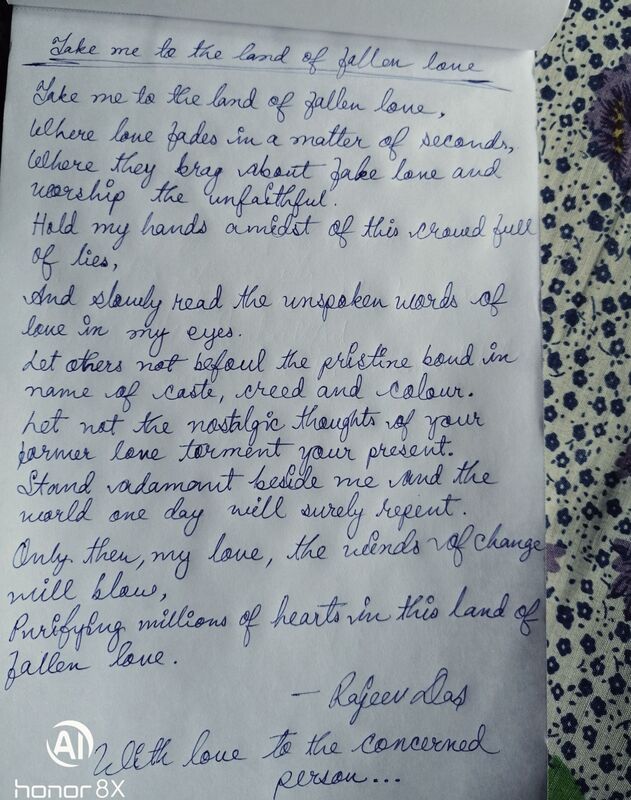 Take me to the land of fallen love
Take me to the land of fallen love,
Where love fades in a matter of seconds,
Where they brag about fake love and
worship the unfaithful.
Hold my hands amidst of this crowd full
of lies,
And slowly read the unspoken words of
love in my eyes.
Let others not befoul the pristine bond in
name of caste, creed and colour.
Let not the nostalgic thoughts of your
former love torment your present.
Stand adamant beside me and the
world one day will surely repent.
Only then, my love, the winds of change
will blow,
Purifying millions of hearts in this land of
fallen love.
— Rajeev Das
With love to the concerned
person...
AI
honor 8X